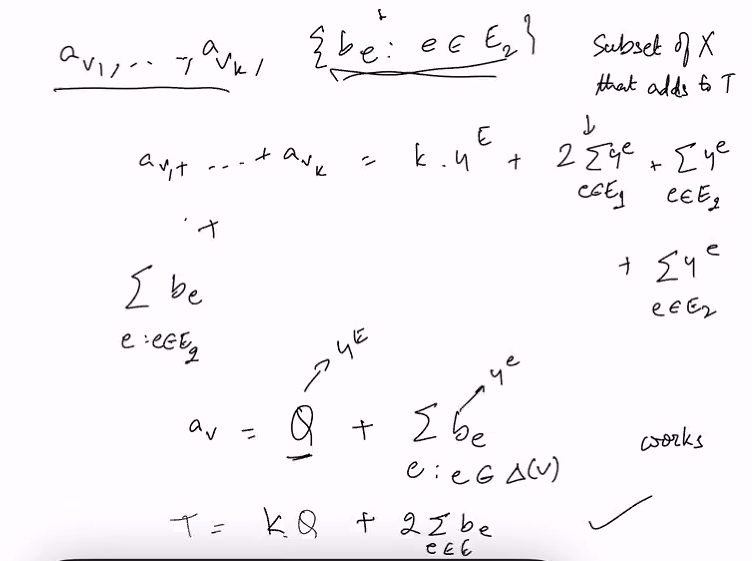 a_{v_1}, ..., a_{v_k}, {b_e : e ∈ E_2} Subset of X
that adds to T
a_{v_1} + .... + a_{v_k} = k · 4^E + 2 Σ_{e∈E_1} 4^e + Σ_{e∈E_2} 4^e
+
Σ_{e : e∈E_2} b_e + Σ_{e∈E_2} 4^e
→ 4^E → 4^e
a_v = Q + Σ_{e : e∈Δ(v)} b_e works
T = kQ + 2 Σ_{e∈E} b_e ✓